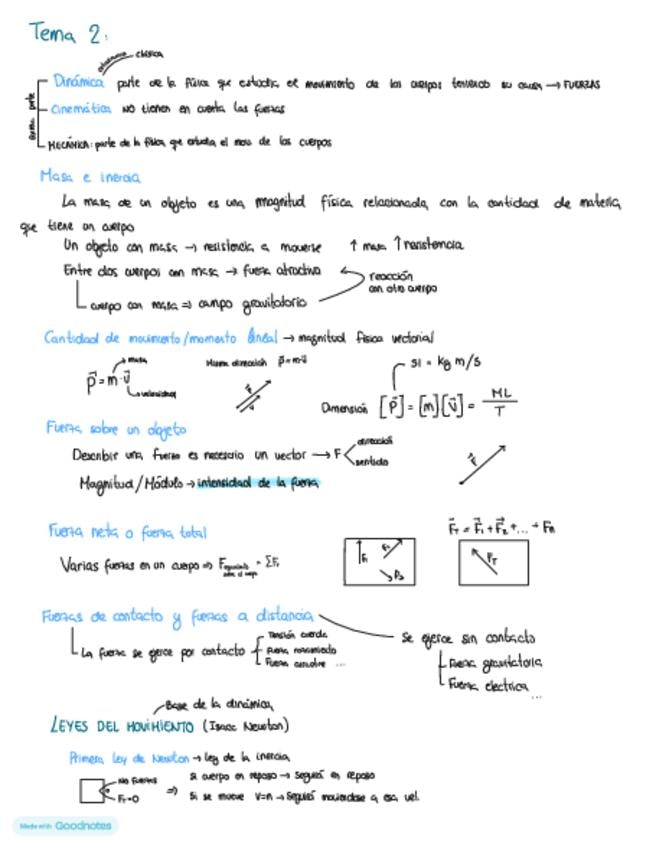 Tema 2:
clásica
Dinámica parte de la física que estudia el movimiento de los cuerpos teniendo su causa → FUERZAS
Cinemática NO tienen en cuenta las fuerzas
MECÁNICA: parte de la física que estudia el mov de los cuerpos
Masa e inercia
La masa de un objeto es una magnitud física relacionada con la cantidad de materia
que tiene un cuerpo
Un objeto con masa → resistencia a moverse ↑ masa ↑ resistencia
Entre dos cuerpos con masa → fuerza atractiva
reacción
con otro cuerpo
cuerpo con masa => campo gravitatorio
Cantidad de movimiento/momento lineal → magnitud física vectorial
masa
p⃗ = m·v⃗
velocidad
Misma dirección p⃗ = m·v⃗
SI = kg m/s
Dimensión [p⃗] = [m][v⃗] = ML/T
Fuerza sobre un objeto
Describir una fuerza es necesario un vector → F
dirección
sentido
F⃗
Magnitud/Módulo → intensidad de la fuerza
Fuerza neta o fuerza total
F⃗T = F⃗1 + F⃗2 + ... + Fn
Varias fuerzas en un cuerpo => F = ΣFi
F1 F2 F3
F⃗T
Fuerzas de contacto y fuerzas a distancia
La fuerza se ejerce por contacto
Tensión cuerda
Fuerza rozamiento
Fuerza ...
Se ejerce sin contacto
Fuerza gravitatoria
Fuerza eléctrica
...
Base de la dinámica
LEYES DEL MOVIMIENTO (Isaac Newton)
Primera Ley de Newton → ley de la inercia
NO fuerzas
FT=0
=>
Si cuerpo en reposo → seguirá en reposo
Si se mueve v=n → seguirá moviéndose a esa vel.
Made with Goodnotes